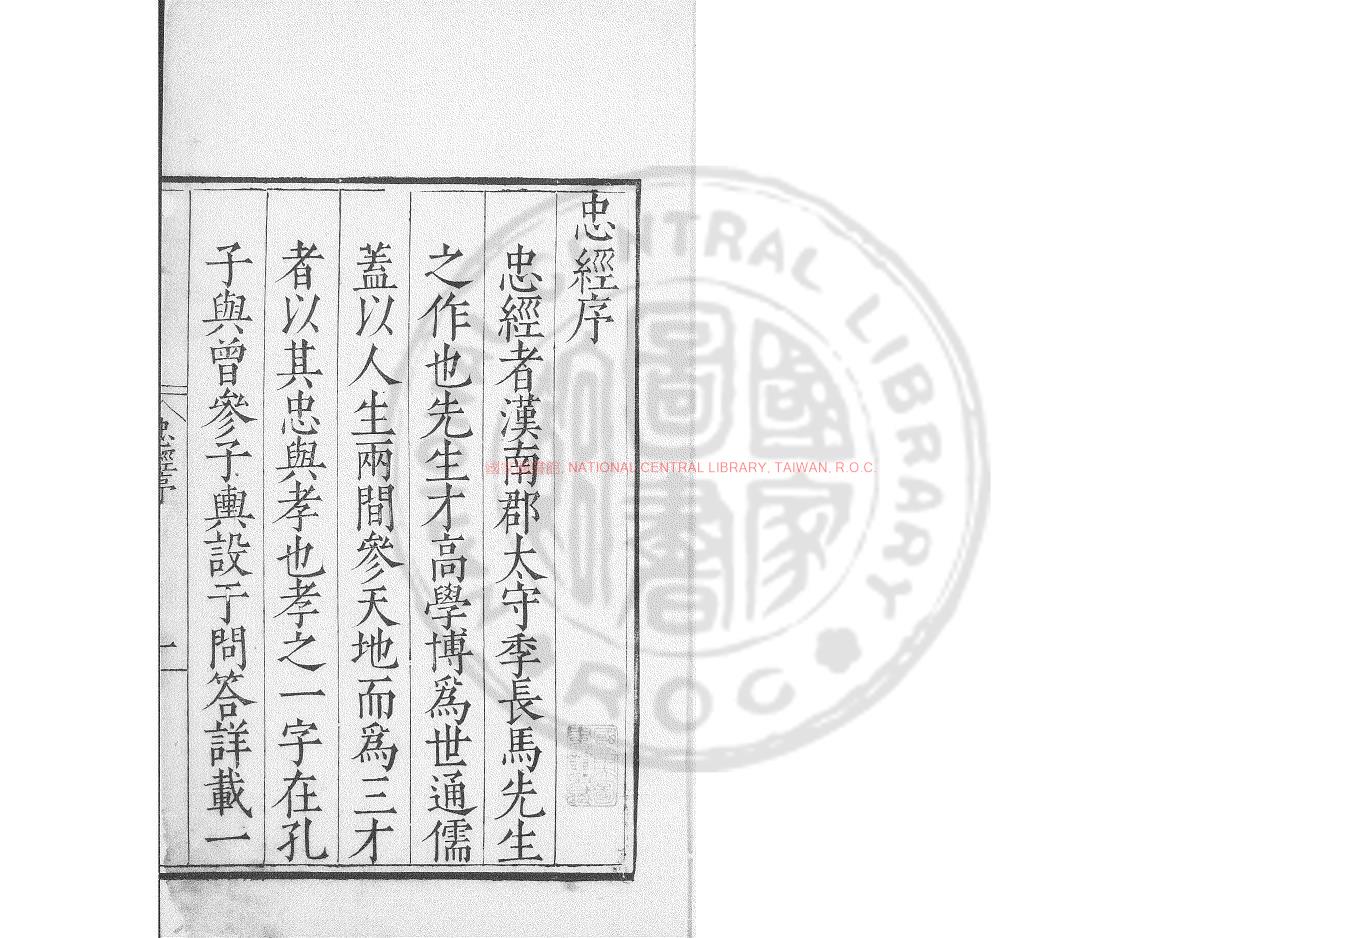 忠經序
忠經者漢南郡太守季長馬先生
之作也先生才高學博爲世通儒
蓋以人生兩間參天地而爲三才
者以其忠與孝也孝之一字在孔
子與曾參子輿設于問答詳載一
忠經序
一
CENTRAL LIBRARY
R.O.C
國家圖書館
國家圖書館, NATIONAL CENTRAL LIBRARY, TAIWAN, R.O.C.